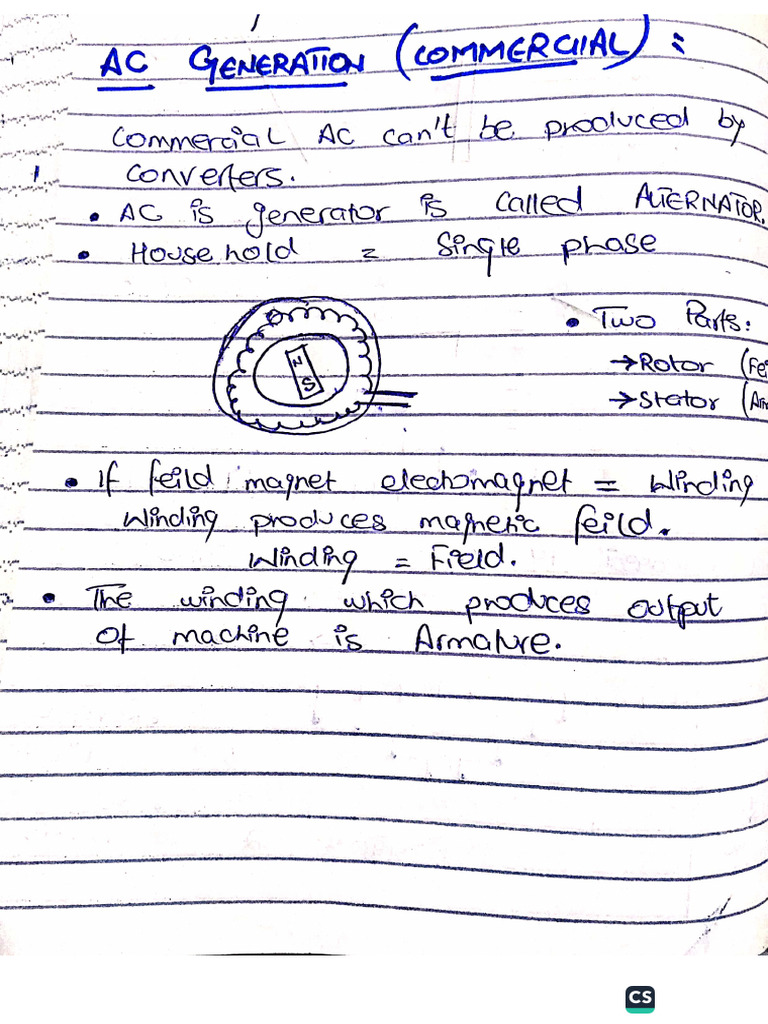 AC GENERATION (COMMERCIAL) :
Commercial AC can't be produced by
converters.
• AC is generator is called ALTERNATOR.
• House hold = Single phase
N
S
• Two Parts:
→ Rotor (Fe
→ Stator (Ar
• If feild magnet electromagnet = Winding
Winding produces magnetic feild.
Winding = Field.
• The winding which produces output
of machine is Armature.
CS